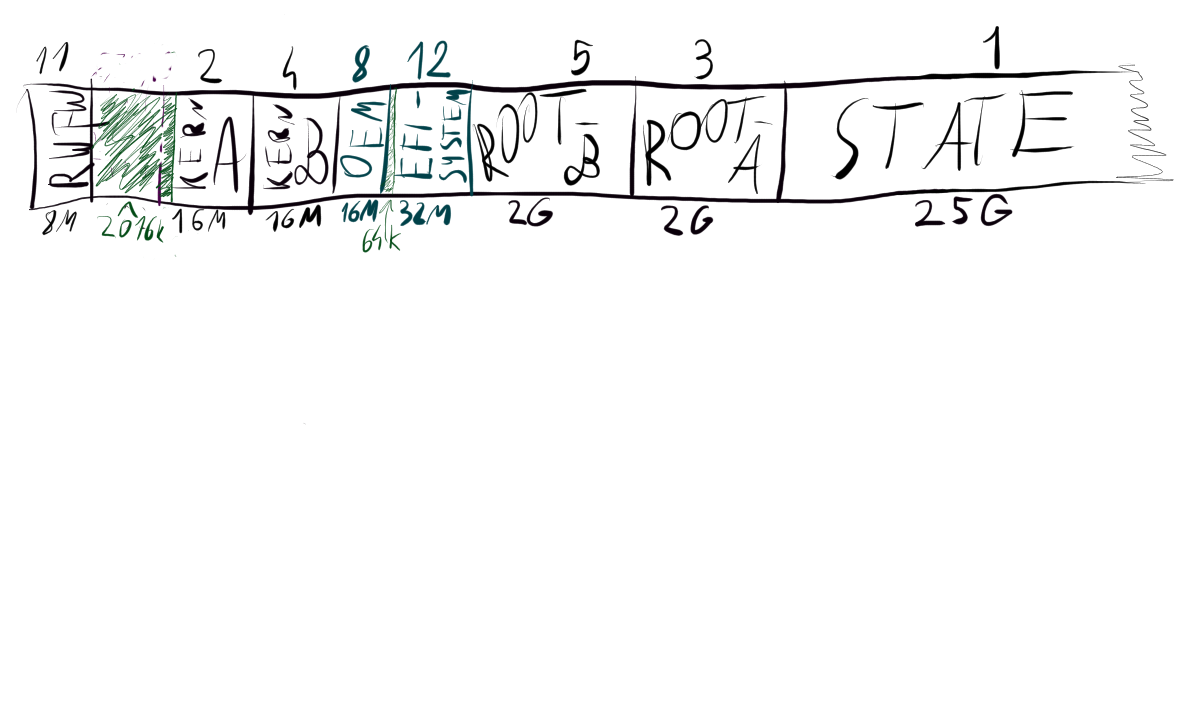 11 2 4 8 12 5 3 1
RWFW KERN A KERN B OEM EFI-SYSTEM ROOT-B ROOT-A STATE
8M 2016k 16M 16M 16M 32M 2G 2G 25G
64k